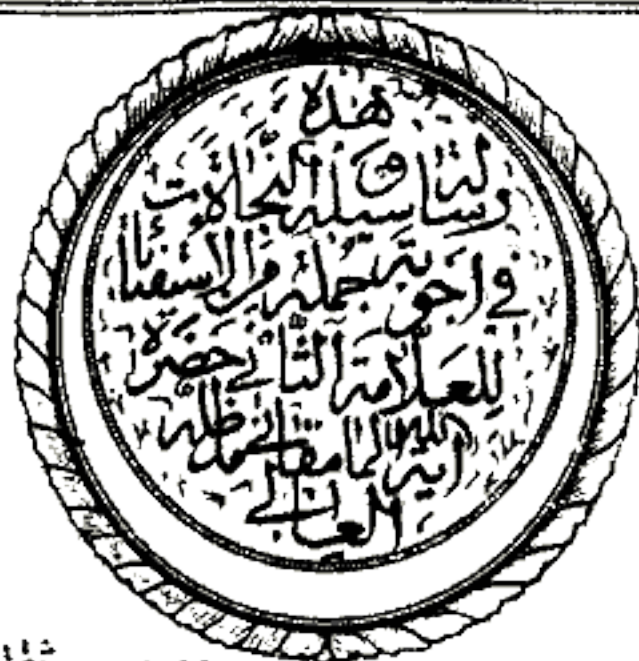 هذه
رسالة وسيلة النجاة
في اجوبة جملة من الاستفتائات
للعلامة الثاني حضرة
اية الله المامقاني مد ظله
العالي